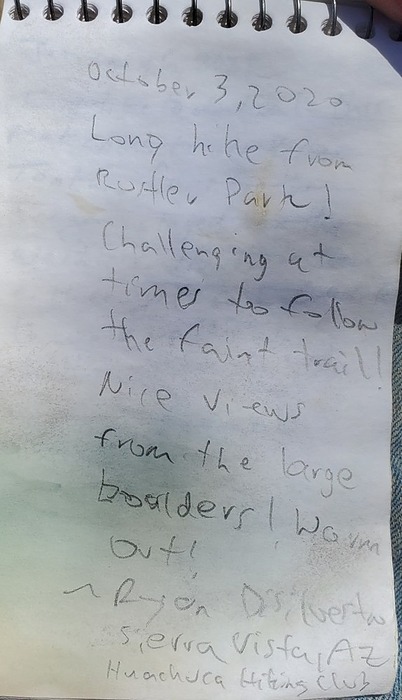 October 3, 2020
Long hike from
Rustler Park!
Challenging at
times to follow
the faint trail!
Nice views
from the large
boulders! Warm
out!
~ Ryan DiSilvestro
Sierra Vista, AZ
Huachuca Hiking Club